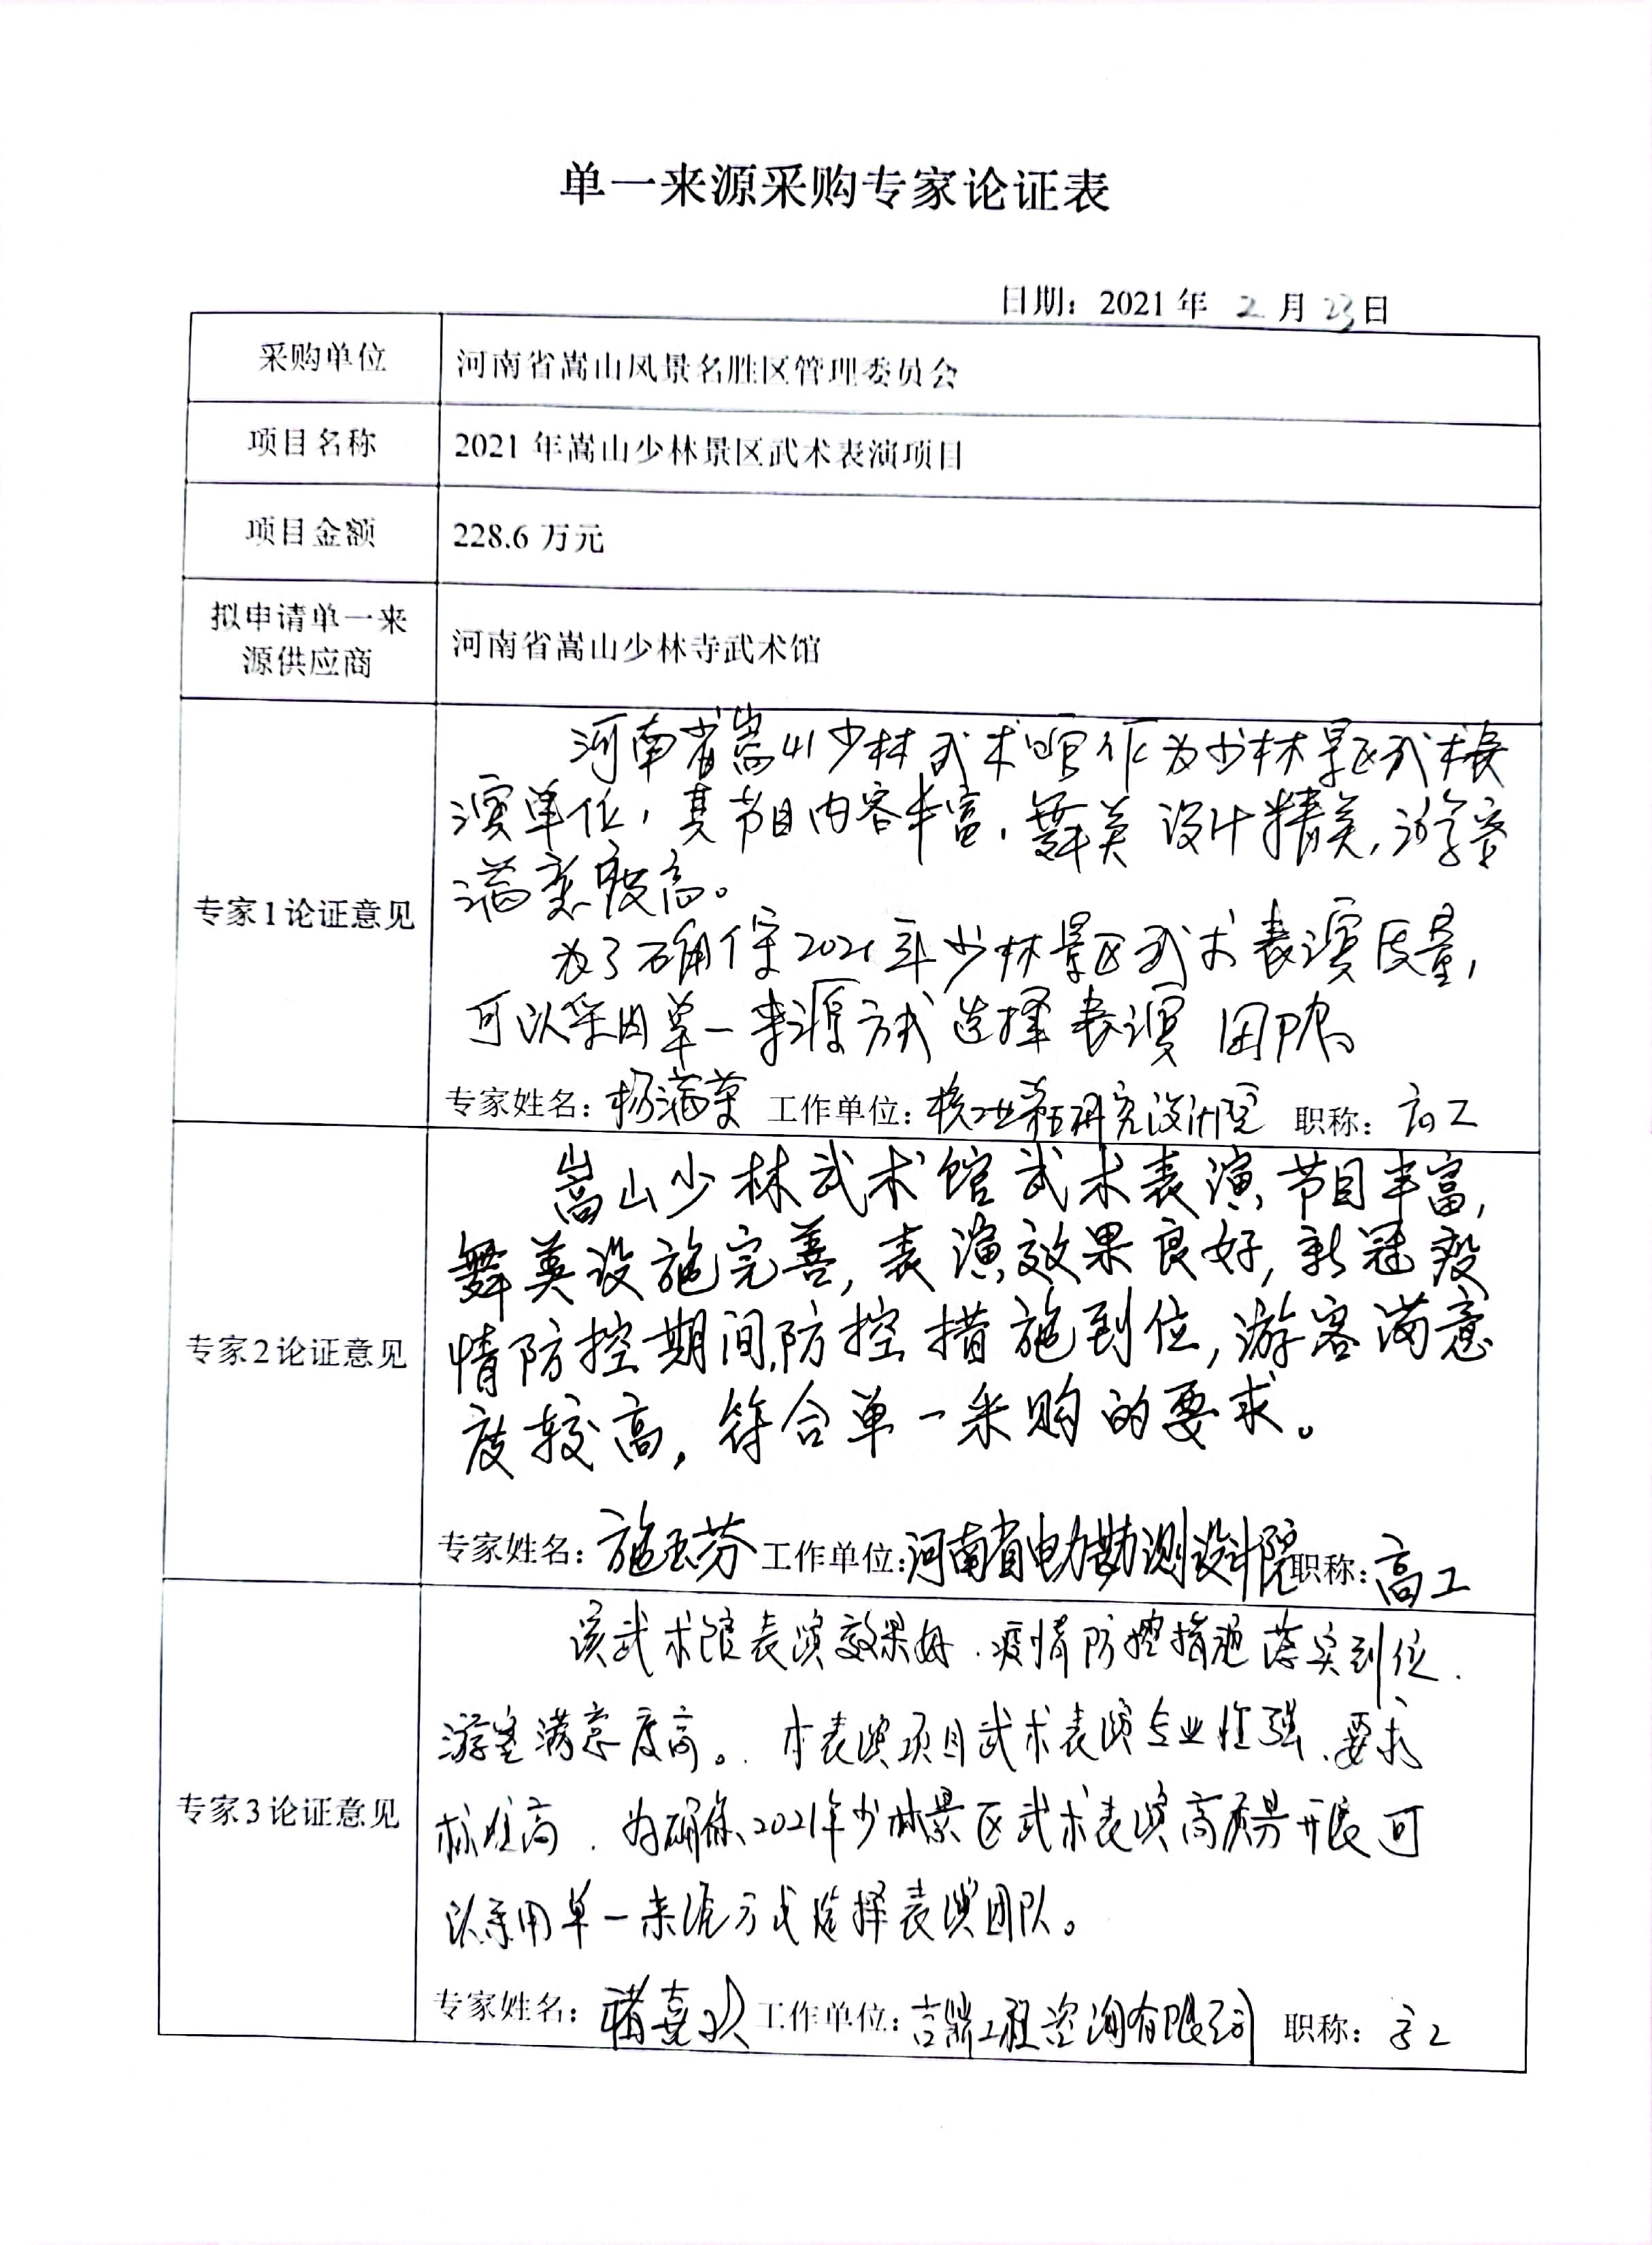 单一来源采购专家论证表
日期：2021年 2 月 23 日
采购单位
河南省嵩山风景名胜区管理委员会
项目名称
2021年嵩山少林景区武术表演项目
项目金额
228.6 万元
拟申请单一来
源供应商
河南省嵩山少林寺武术馆
专家1论证意见
河南省嵩山少林武术馆作为少林景区武术表
演单位，其节目内容丰富，舞美设计精美，游客
满意度高。
为了确保2021年少林景区武术表演质量，
可以采用单一来源方式选择表演团队。
专家姓名：杨 工作单位：核工业第五研究设计院 职称：高工
专家2论证意见
嵩山少林武术馆武术表演节目丰富，
舞美设施完善，表演效果良好，新冠疫
情防控期间，防控措施到位，游客满意
度较高，符合单一采购的要求。
专家姓名：施玉芬 工作单位：河南省电力勘测设计院 职称：高工
专家3论证意见
该武术馆表演效果好，疫情防控措施落实到位，
游客满意度高。本表演项目武术表演专业性强、要求
标准高，为确保2021年少林景区武术表演高质量开展可
以采用单一来源方式选择表演团队。
专家姓名：褚喜 工作单位：吉鼎工程咨询有限公司 职称：高工